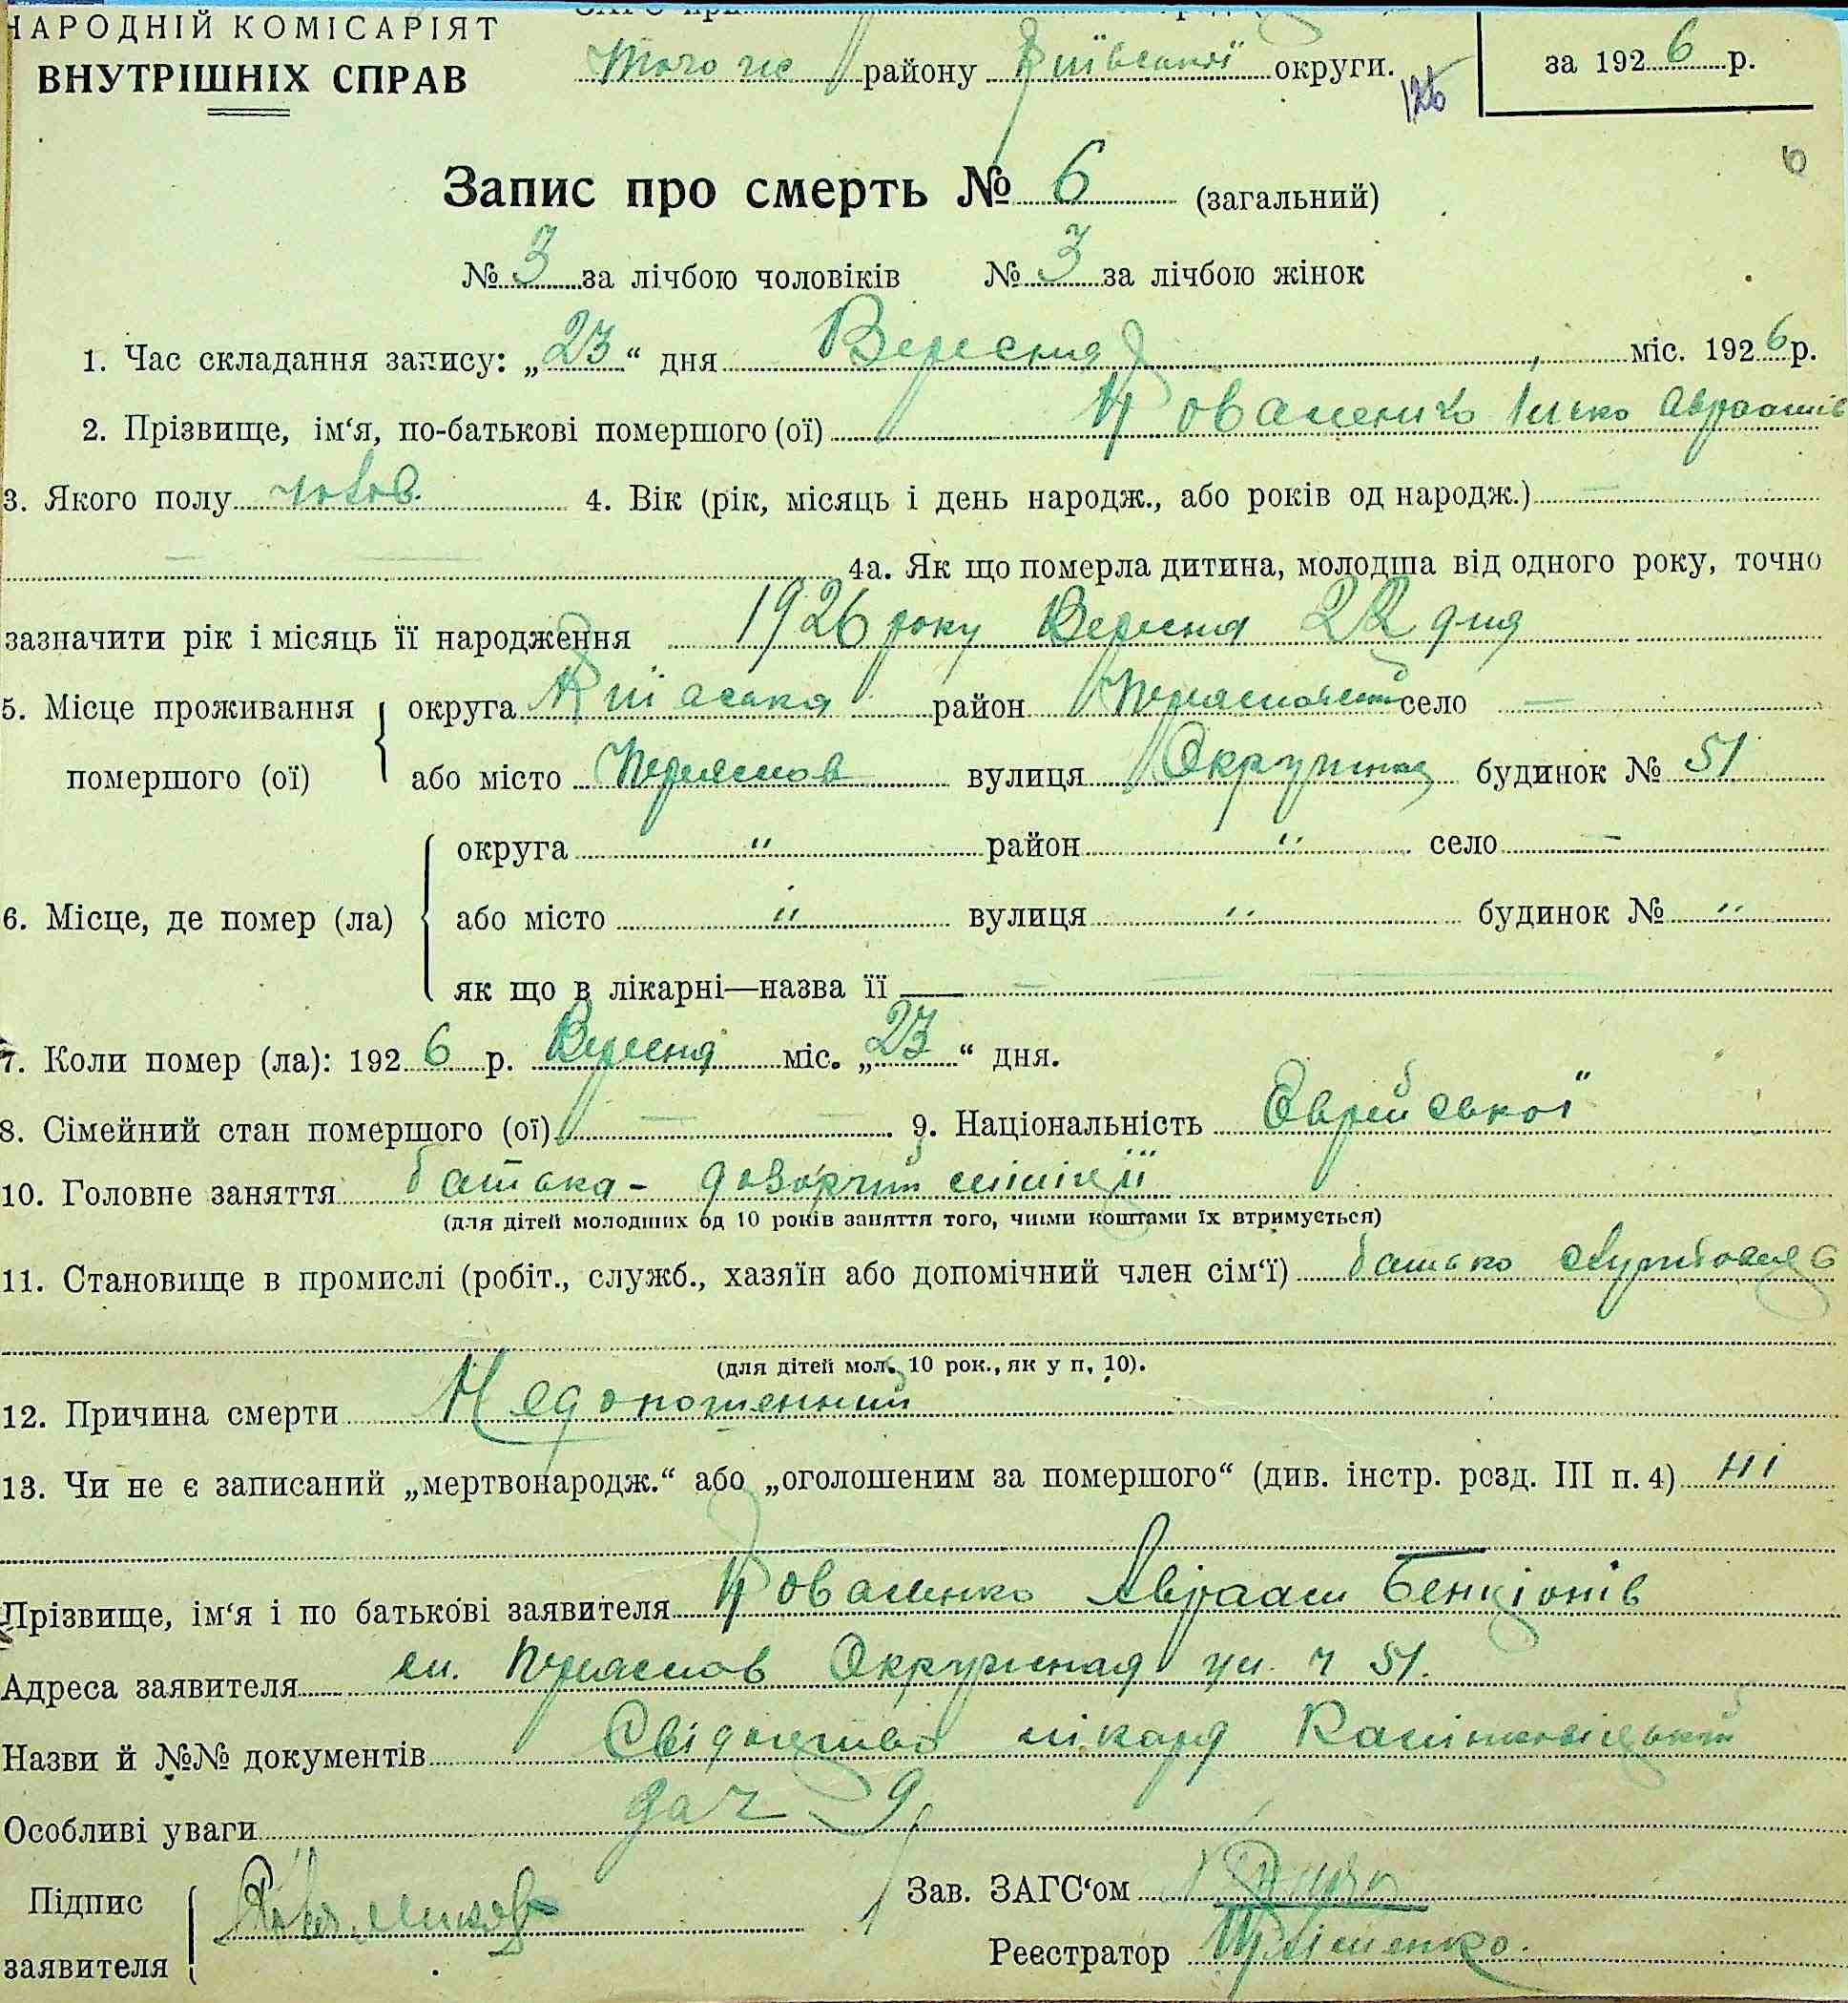 НАРОДНІЙ КОМІСАРІЯТ
ВНУТРІШНІХ СПРАВ
Того же району Київської округи.
126
за 1926 р.
6
Запис про смерть № 6 (загальний)
№ 3 за лічбою чоловіків № 3 за лічбою жінок
1. Час складання запису: „23“ дня Вересня міс. 1926 р.
2. Прізвище, ім‘я, по-батькові помершого (ої) Коваленко Ицко Авраамів
3. Якого полу чолов. 4. Вік (рік, місяць і день народж., або років од народж.) —
— 4а. Як що померла дитина, молодша від одного року, точно
зазначити рік і місяць її народження 1926 року Вересня 22 дня
5. Місце проживання помершого (ої) округа Київська район село —
або місто Переяслов вулиця Окружная будинок № 51
6. Місце, де помер (ла) округа " район " село —
або місто " вулиця " будинок № "
як що в лікарні—назва її —
7. Коли помер (ла): 1926 р. Вересня міс. „23“ дня.
8. Сімейний стан помершого (ої) — 9. Національність Єврейської
10. Головне заняття батька -
(для дітей молодших од 10 років заняття того, чиїми коштами їх втримується)
11. Становище в промислі (робіт., служб., хазяїн або допомічний член сім‘ї) батько
(для дітей мол. 10 рок., як у п, 10).
12. Причина смерти Недоношенний
13. Чи не є записаний „мертвонародж.“ або „оголошеним за помершого“ (див. інстр. розд. III п. 4) ні
Прізвище, ім‘я і по батькові заявителя Коваленко Авраам Бенціонів
Адреса заявителя м. Переяслов Окружная ул. ч 51.
Назви й №№ документів Свідоцтво лікаря
Особливі уваги
Підпис заявителя
Зав. ЗАГС‘ом
Реєстратор